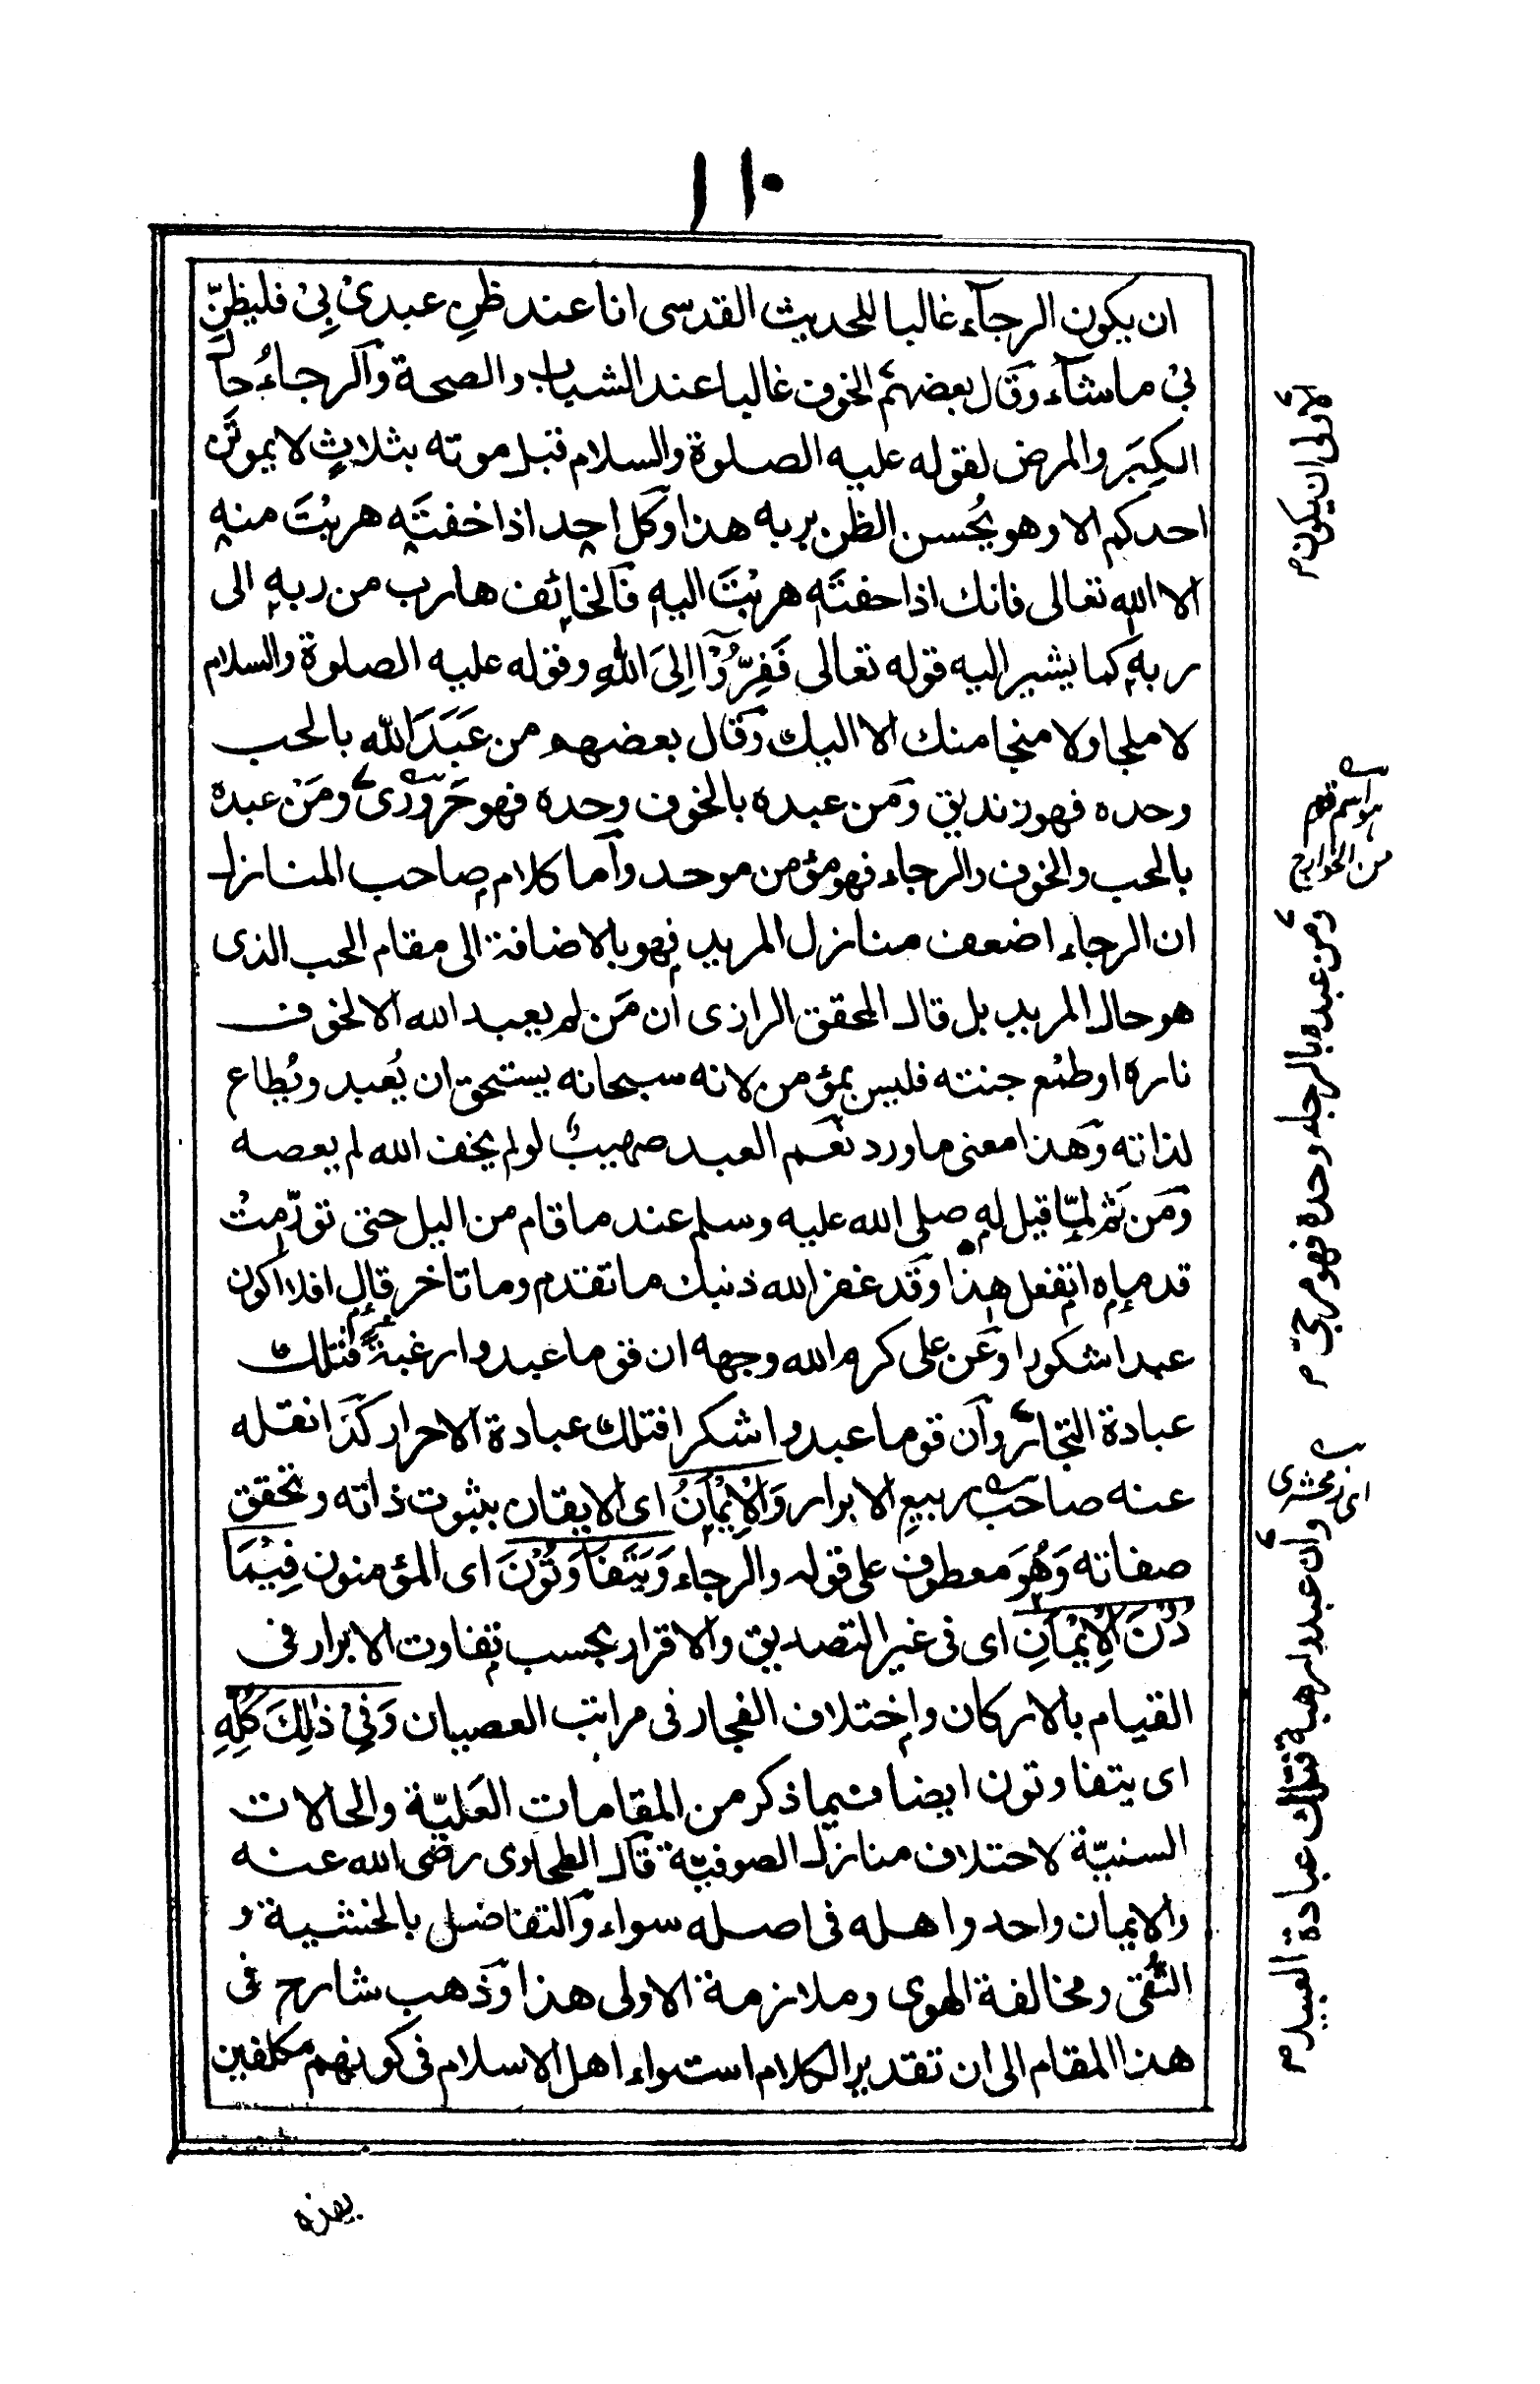 ١١٠
ان يكون الرجآء غالبا للحديث القدسى انا عند ظنِ عبدىْ بِىْ فليظنّ
بىْ ما شآء وقال بعضهم الخوف غالبا عند الشباب والصحة والرجاءُ حال
الكِبَر والمرض لقوله عليه الصلوة والسلام قبل موته بثلاثٍ لا يموتَن
احدكم الا وهو يُحسن الظن بربه هذا وكل احد اذا خفتَه هربْتَ منه
الا الله تعالى فانك اذا خفتَه هربْتَ اليه فالخائف هارب من ربه الى
ربه كما يشير اليه قوله تعالى فَفِرُّوْآ اِلىَ اللهِ وقوله عليه الصلوة والسلام
لا ملجا ولا منجا منك الا اليك وقال بعضهم من عَبَدَ الله بالحب
وحده فهو زنديق ومن عبده بالخوف وحده فهو حَرورىّ ومَنْ عبده
بالحب والخوف والرجاء فهو مؤمن موحد وآما كلام صاحب المنازل
ان الرجاء اضعف منازل المريد فهو بالاضافة الى مقام الحب الذى
هو حال المريد بل قال المحقق الرازى ان مَن لم يعبد الله الا لخوف
ناره او طمْع جنته فليس بمؤمن لانه سبحانه يستحق ان يُعبد ويُطاع
لذاته وهذا معنى ما ورد نعم العبد صهيبٌ لو لم يخف الله لم يعصه
ومَن ثَم لمّا قيل له صلى الله عليه وسلم عند ما قام من اليل حتى تورّمتْ
قدماه اتفعل هذا وقد غفر الله ذنبك ما تقدم وما تاخر قال افلا اكون
عبدا شكورا وعَن على كرم الله وجهه ان قوما عبدوا رغبة فتلك
عبادة التجار وآن قوما عبدوا شكرا فتلك عبادة الاحرار كذا نقله
عنه صاحب ربيعِ الابرار وَالْاِيْمَانُ اى الايقان بثبوت ذاته وتحقق
صفاته وَهُوَ معطوف على قوله والرجاء وَيَتَفَاوَتُوْنَ اى المؤمنون فِيْمَا
دُنَ الْاِيْمَانِ اى فى غير التصديق والاقرار بحسب تفاوت الابرار فى
القيام بالاركان واختلاف الفجار فى مراتب العصيان وَفِىْ ذٰلِكَ كُلِّهِ
اى يتفاوتون ايضا فيما ذكر من المقامات العَليّة والحالات
السنيّة لاختلاف منازل الصوفيّة قال الطحاوى رضى الله عنه
والايمان واحد واهله فى اصله سواء والتفاضل بالخشية و
التُّقى ومخالفة الهوى وملازمة الاولى هذا وذهب شارح فى
هذا المقام الى ان تقدير الكلام استواء اهل الاسلام فى كونهم مكلفين
بهذه
الاولى ان يكون م
هو اسم قوم
من الخوارج
ومن عبده بالرجاء وحده فهو مرجئ م
اى زمخشرى
وان عبدوا رهبة فتلك عبادة العبيد م